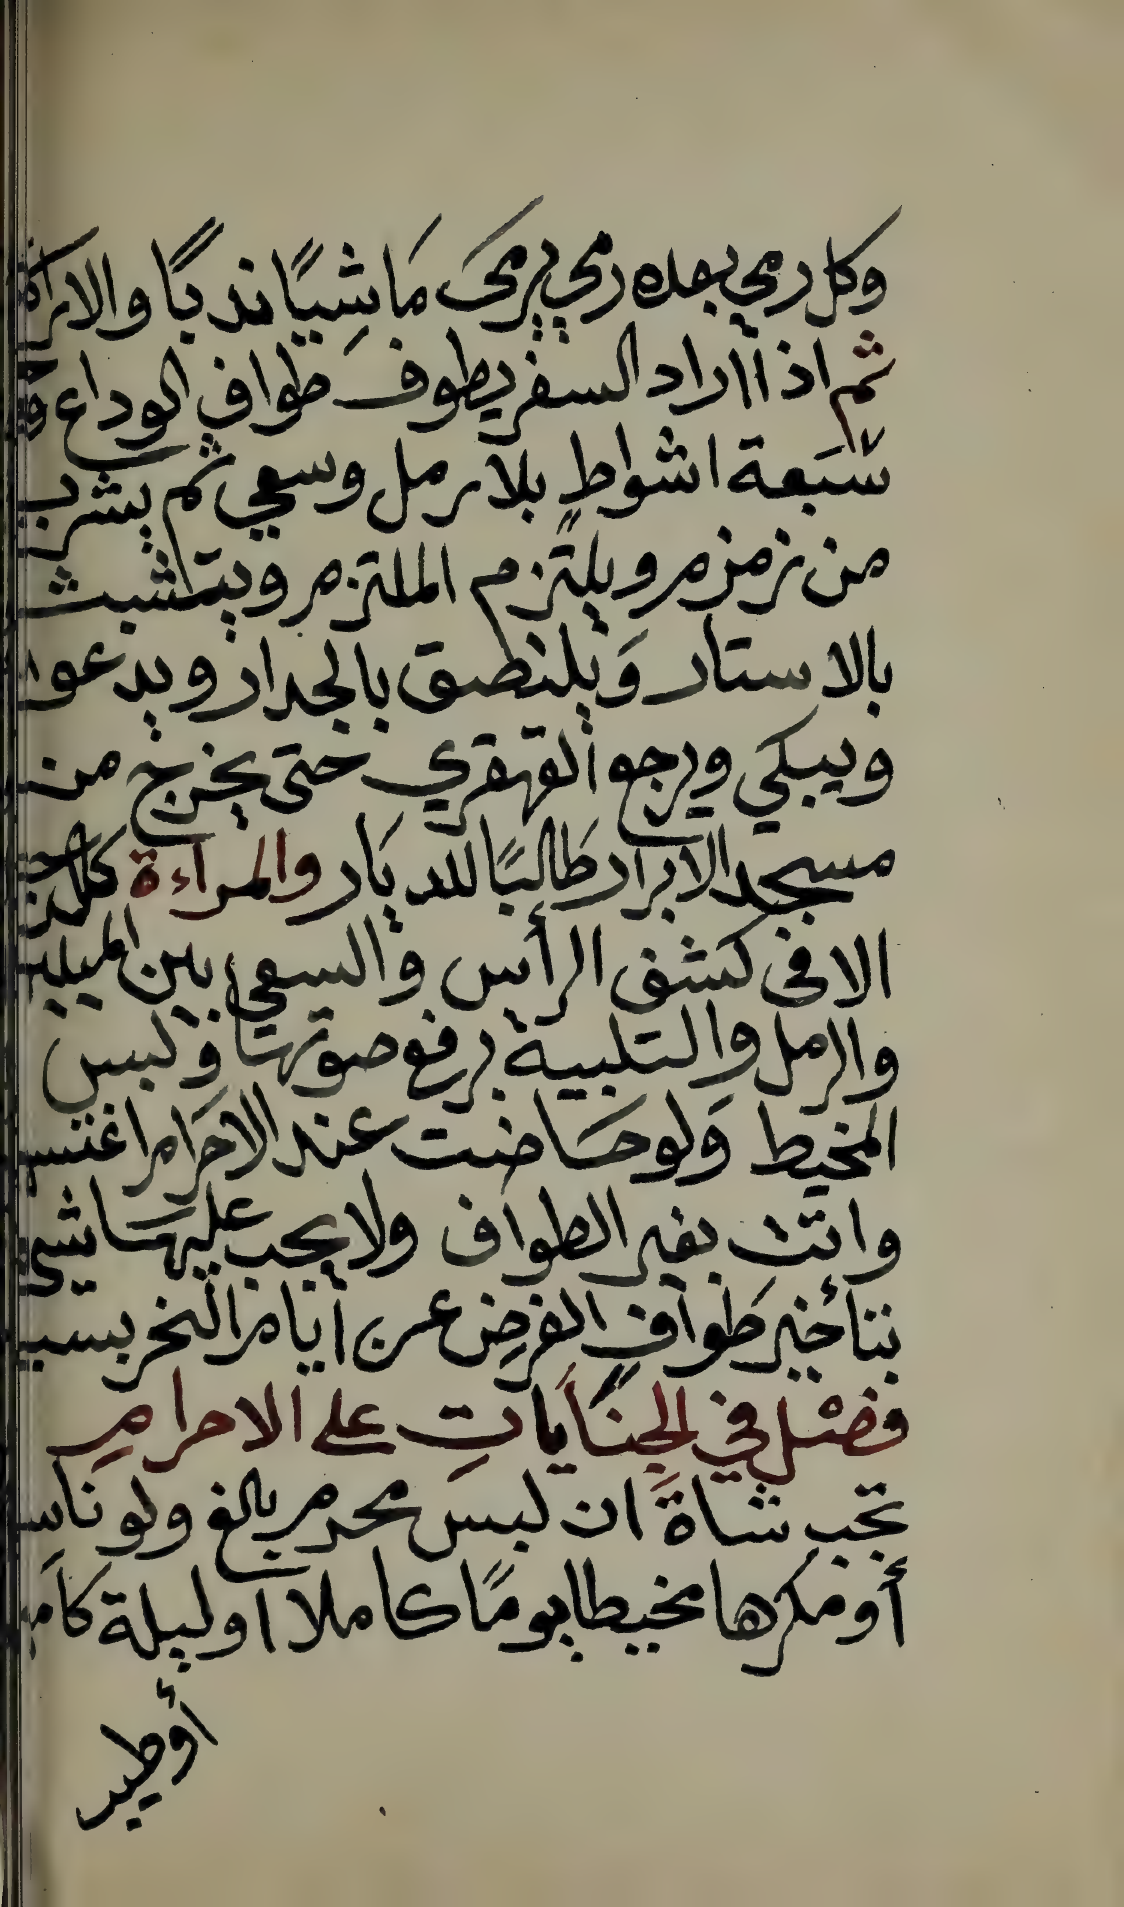 وكل رمي بعده رمي يرمى مَاشِيًا ندبًا والا راكبا
ثم اذا اراد السفر يطوف طواف الوداع
سَبعة اشواطٍ بلا رمل وسعي ثم يشرب
من زمزم ويلتزم الملتزم ويتشبث
بالاستار وَيلتصق بالجدار ويدعوا
ويبكي ويرجع القهقري حتى يخرج من
مسجد الابرار طَالبًا للديَار والمراءة
الا في كشف الرأس والسعي بين الميلين
والرمل والتلبية برفع صوتهَا ولبس
المخيط وَلو حَاضت عند الاحرَام اغتسلت
واتت بغير الطواف ولا يجب عليهَا شي
بتأخير طَواف الفرضِ عن ايام النحر بسببه
فصْل في الجنَايَاتِ على الاحرامِ
تجب شاةَ ان لبسَ محرم بالغ ولو ناسِيا
أو مكرها مخيطا يومًا كاملا او ليلة كامِلة
أو طيب